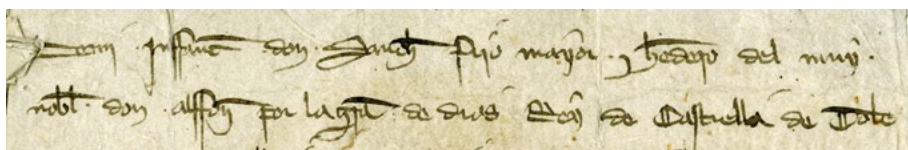 De mi Inffante don Sancho fijo mayor . y heredero del muy .
nobl . don Alffonso por la gracia de dios Rey de Castiella de Tole